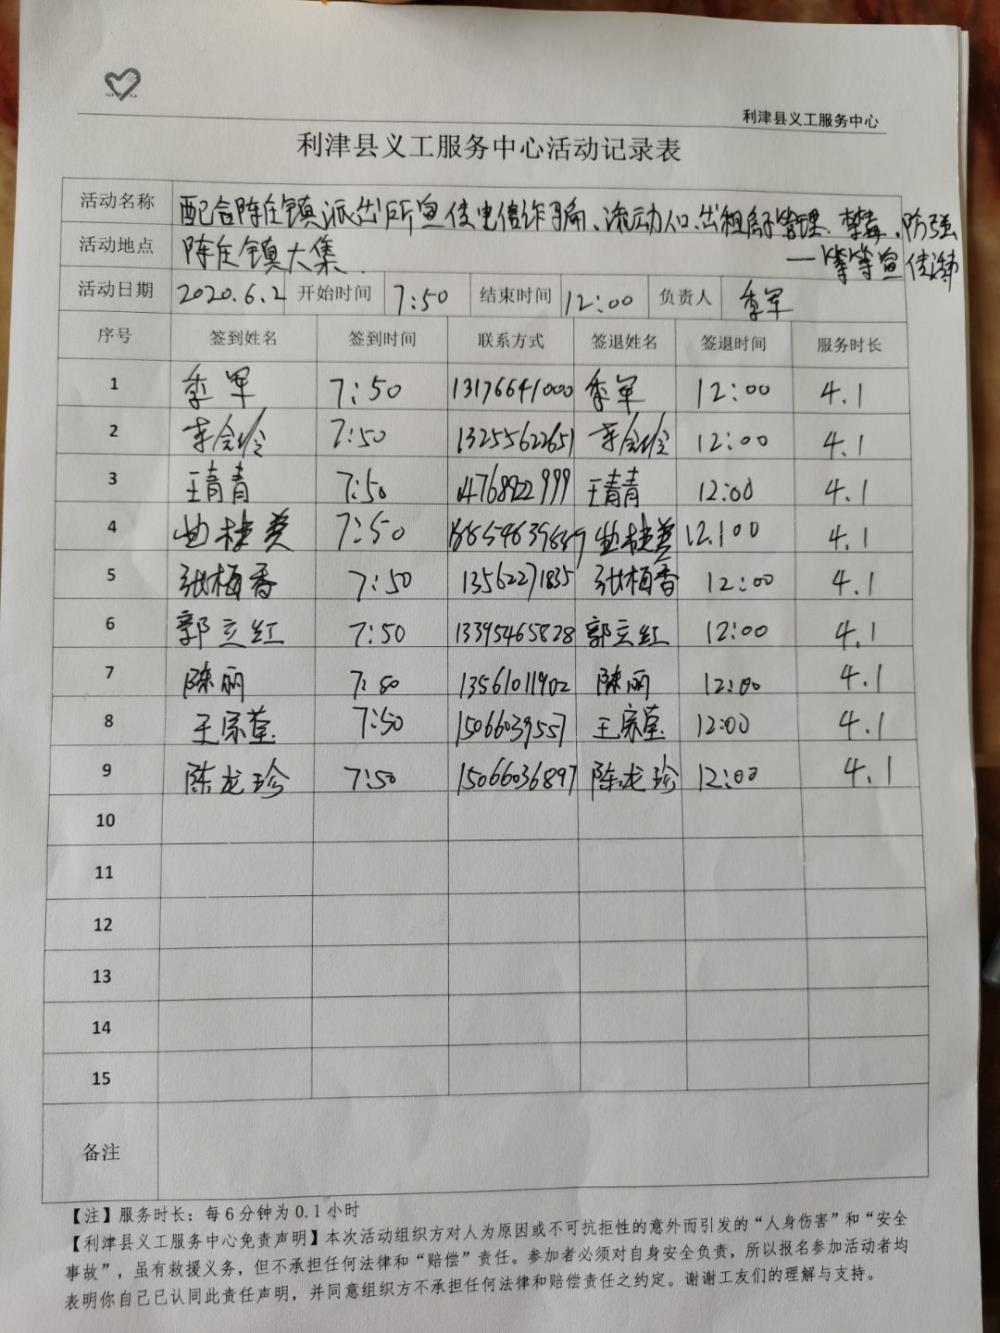 利津县义工服务中心
利津县义工服务中心活动记录表
活动名称 配合陈庄镇派出所宣传电信诈骗、流动人口、出租房管理、禁毒、防强
活动地点 陈庄镇大集 一等等宣传活动
活动日期 2020.6.2 开始时间 7:50 结束时间 12:00 负责人 季军
序号 签到姓名 签到时间 联系方式 签退姓名 签退时间 服务时长
1 季军 7:50 13176641000 季军 12:00 4.1
2 7:50 13255622651 12:00 4.1
3 王青青 7:50 王青青 12:00 4.1
4 曲桂美 7:50 曲桂美 12:00 4.1
5 张梅香 7:50 13562271835 张梅香 12:00 4.1
6 郭立红 7:50 13395465828 郭立红 12:00 4.1
7 陈丽 7:50 13561011902 陈丽 12:00 4.1
8 7:50 15066039557 12:00 4.1
9 陈龙珍 7:50 15066036897 陈龙珍 12:00 4.1
10
11
12
13
14
15
备注
【注】服务时长：每6分钟为0.1小时
【利津县义工服务中心免责声明】本次活动组织方对人为原因或不可抗拒性的意外而引发的“人身伤害”和“安全
事故”，虽有救援义务，但不承担任何法律和“赔偿”责任。参加者必须对自身安全负责，所以报名参加活动者均
表明你自己已认同此责任声明，并同意组织方不承担任何法律和赔偿责任之约定。谢谢工友们的理解与支持。